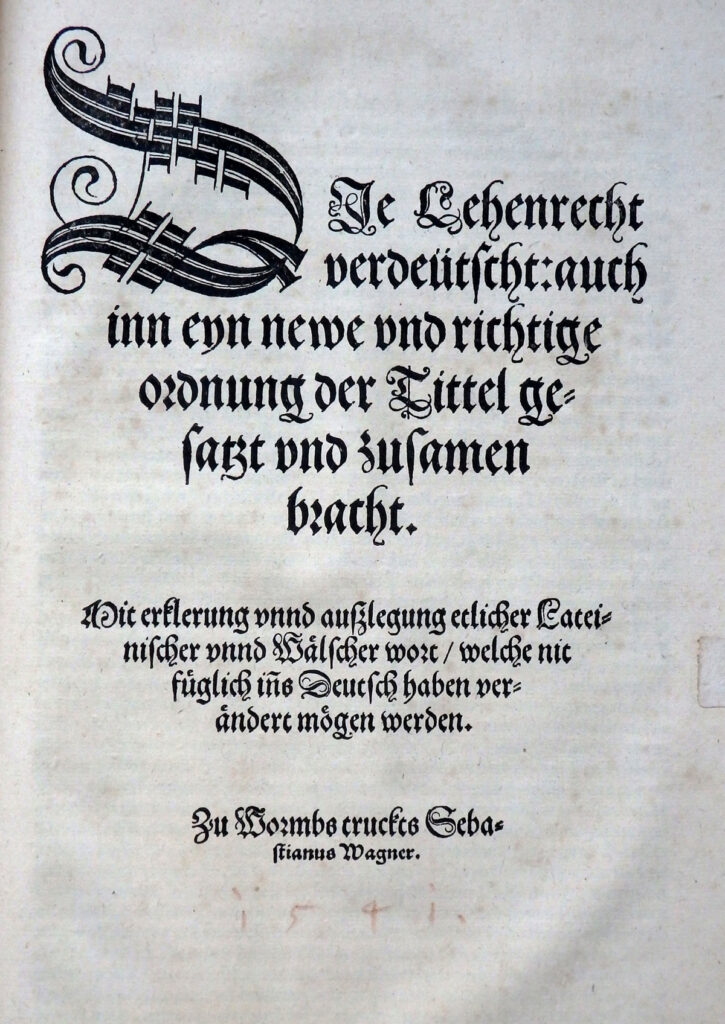 DJe Lehenrecht
verdeütſcht: auch
inn eyn newe vnd richtige
ordnung der Tittel ge⸗
ſatzt vnd zuſamen
bracht.
Mit erklerung vnnd außlegung etlicher Latei⸗
niſcher vnnd Wälſcher wort / welche nit
füglich iñs Deutſch haben ver⸗
ändert mögen werden.
Zu Wormbs truckts Seba⸗
ſtianus Wagner.
1541.